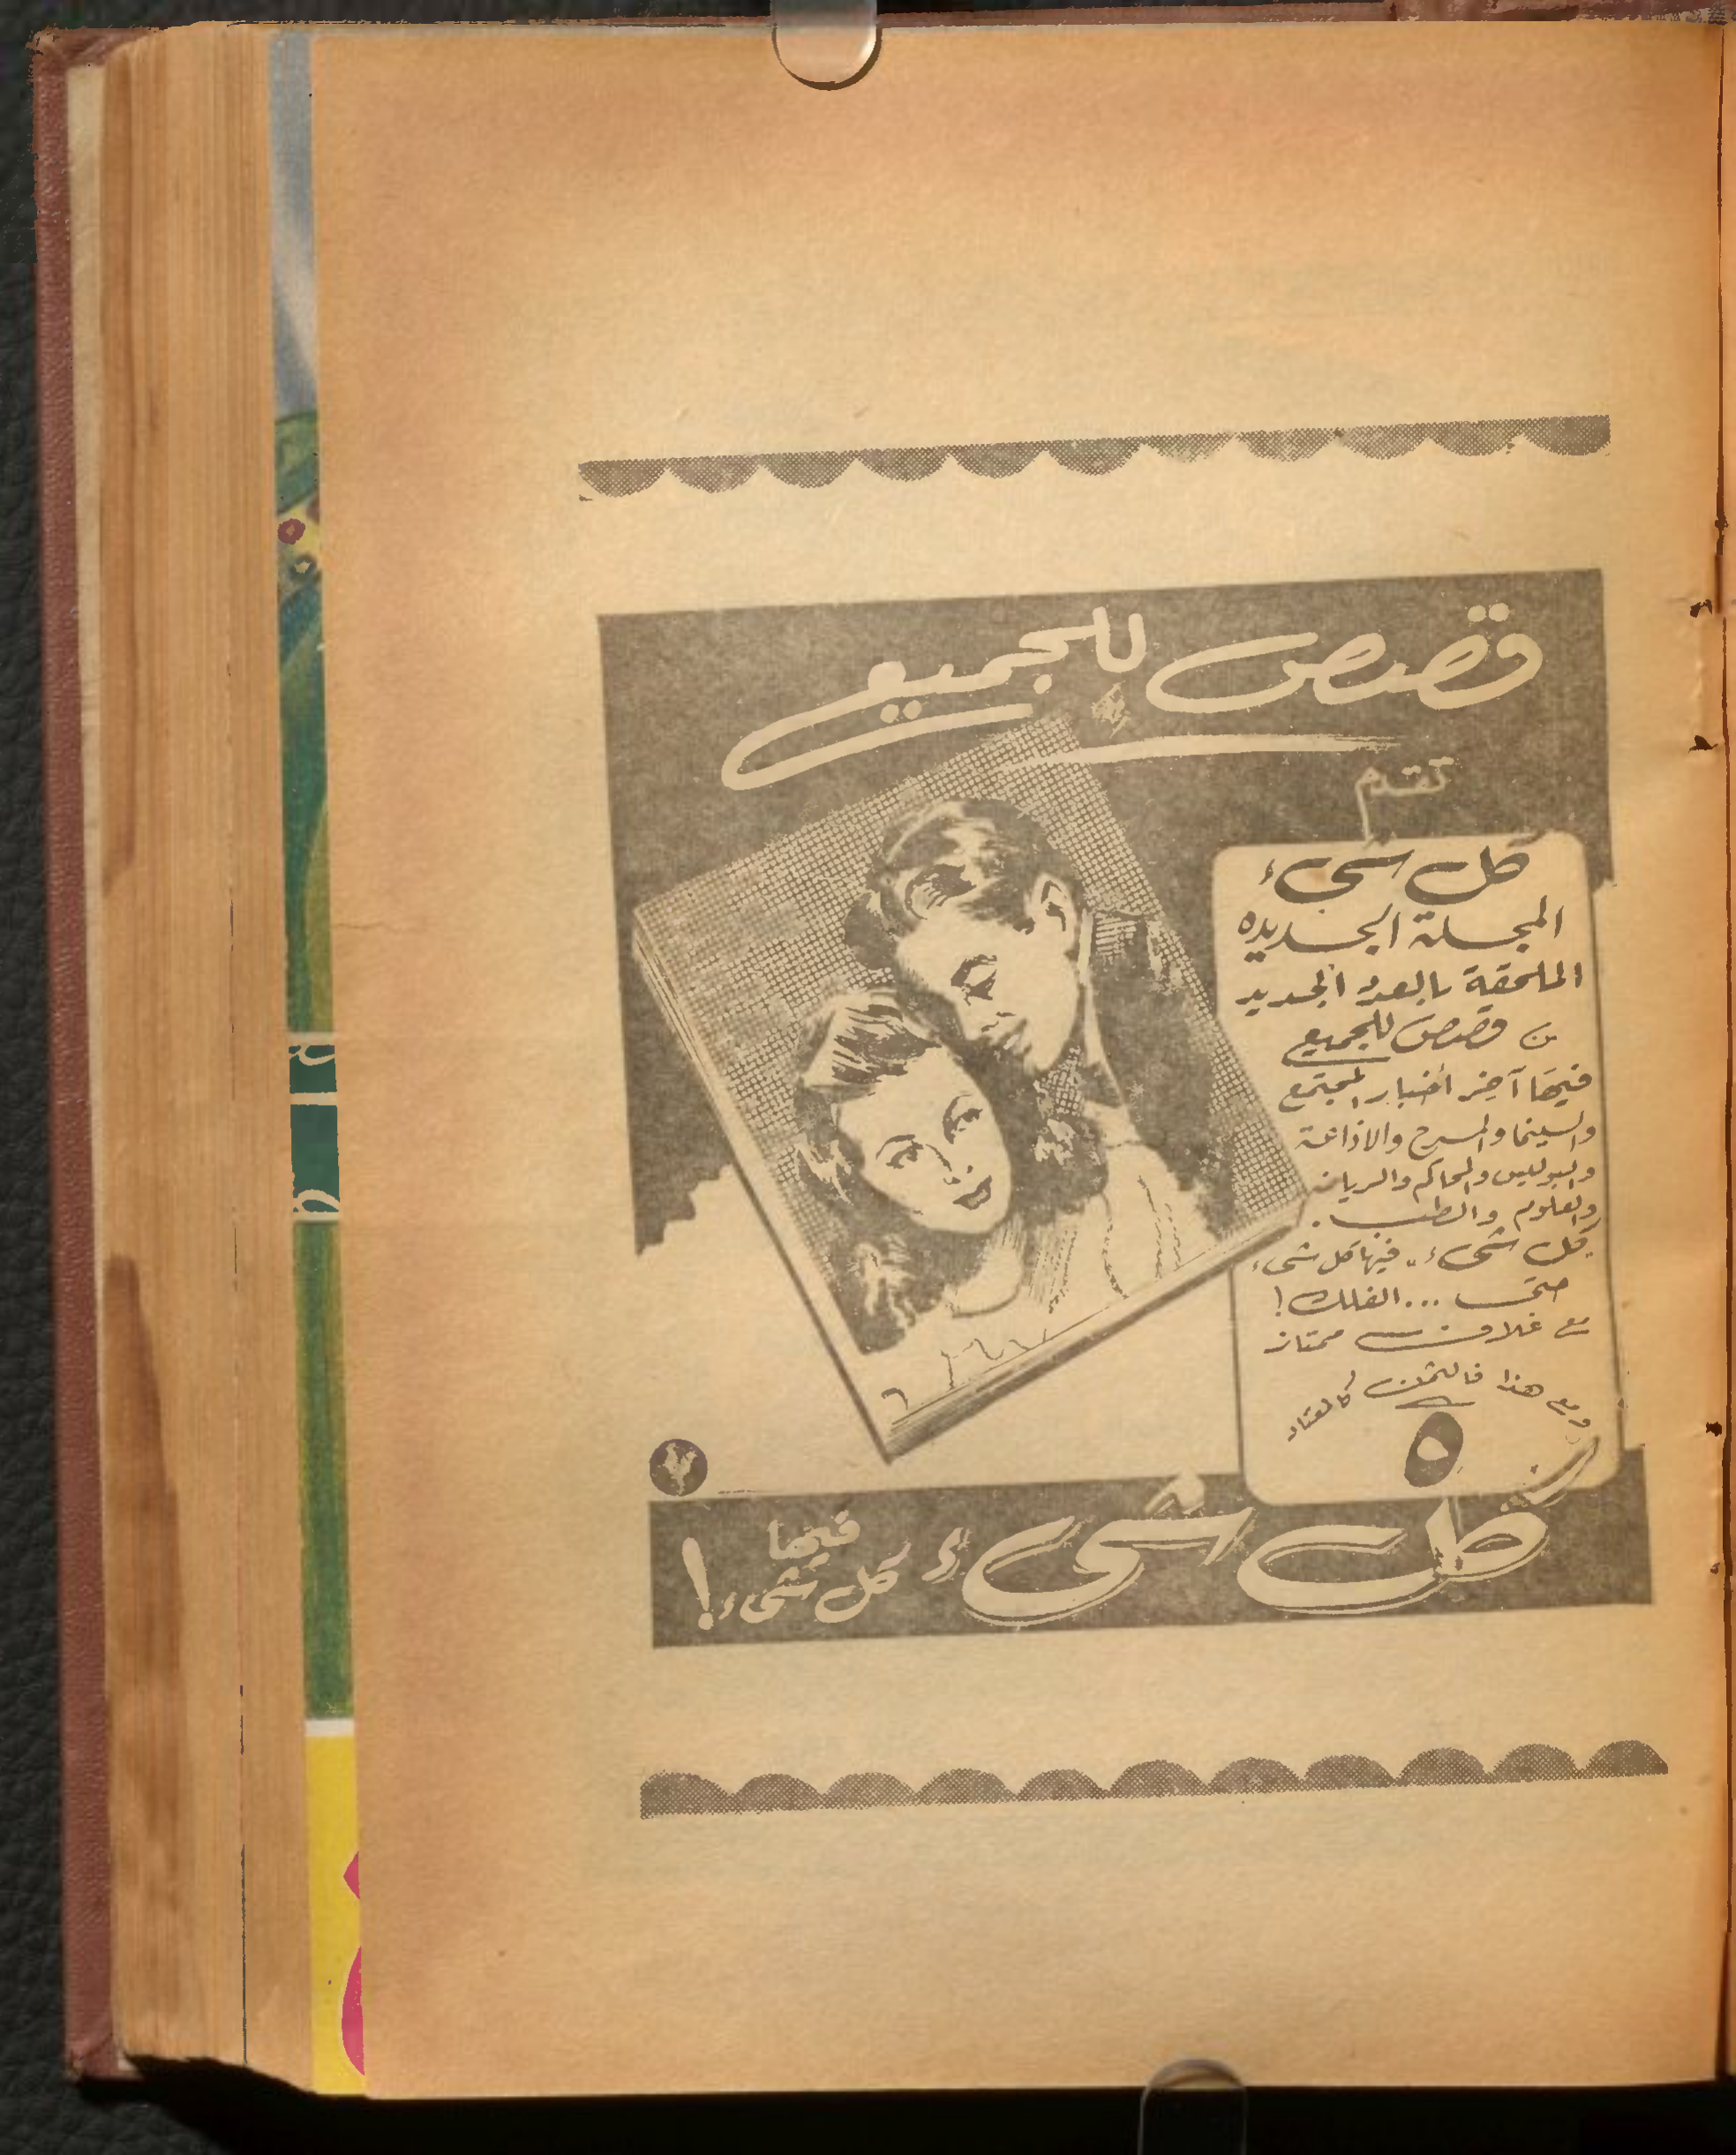 قصص للجميع
تقدم
كل شىء
المجلة الجديده
الملحقة بالعدد الجديد
من قصص للجميع
فيها آخر أخبار المجتمع
والسينما والمسرح والاذاعة
والبوليس والمحاكم والرياضة
والعلوم والطب.
كل شىء.. فيها كل شىء
حتى ... الفلك!
مع غلاف ممتاز
ومع هذا فالثمن كالمعتاد
٥
كل شىء
فيها
كل شىء!